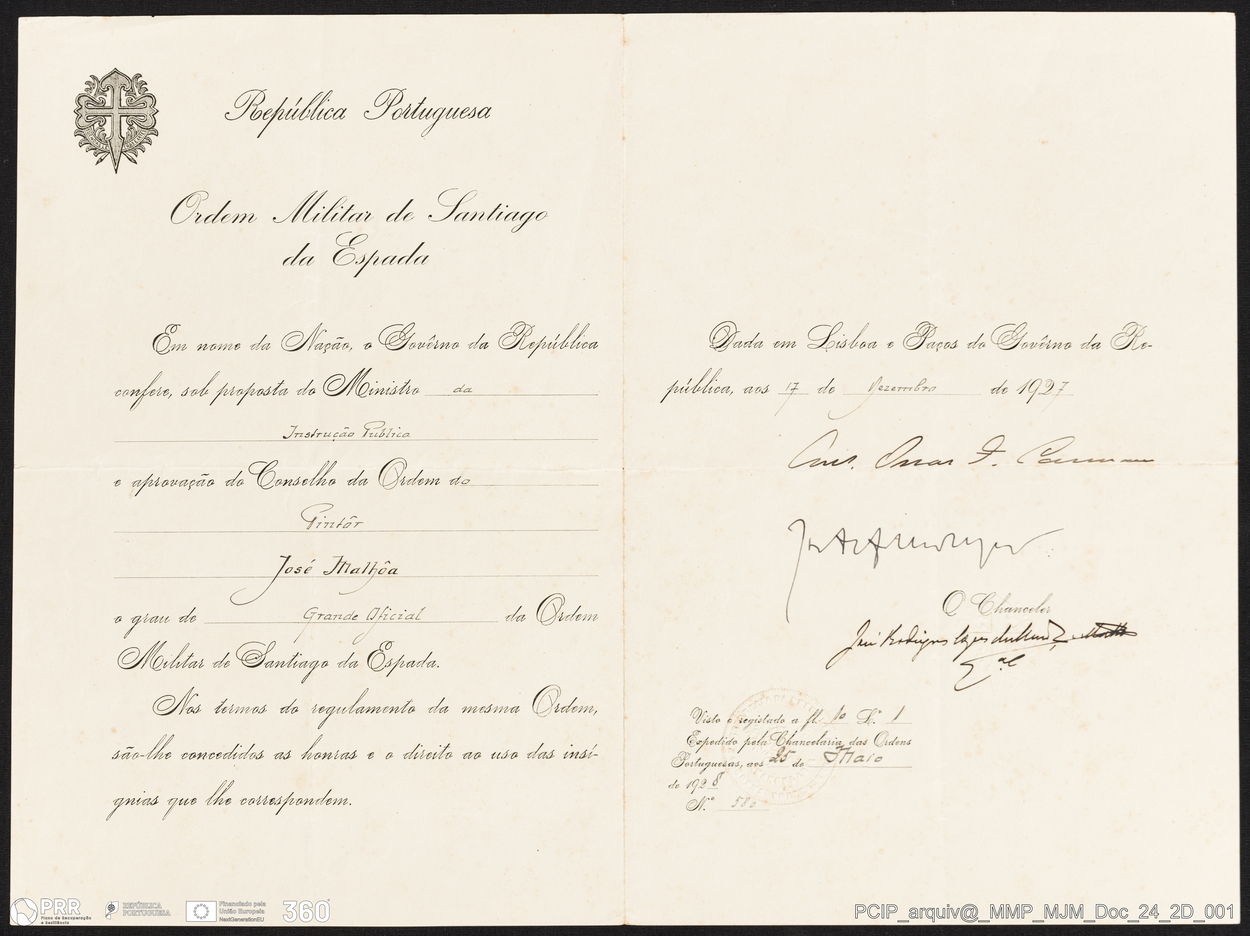 República Portuguesa
Ordem Militar de Santiago
da Espada
Em nome da Nação, o Govêrno da República
confere, sob proposta do Ministro da
Instrução Publica
e aprovação do Conselho da Ordem do
Pintôr
José Malhôa
o grau de Grande Oficial da Ordem
Militar de Santiago da Espada.
Nos termos do regulamento da mesma Ordem,
são-lhe concedidos as honras e o direito ao uso das insí-
gnias que lhe correspondem.
Dada em Lisboa e Paços do Govêrno da Re-
pública, aos 17 de Dezembro de 1927
O Chanceler
Visto e registado a fl. 10 L.º 1
Expedido pela Chancelaria das Ordens
Portuguesas, aos 25 de Maio
de 1928
N.º
PRR
Plano de Recuperação
e Resiliência
REPÚBLICA
PORTUGUESA
Financiado pela
União Europeia
NextGenerationEU
360°
PCIP_arquiv@_MMP_MJM_Doc_24_2D_001